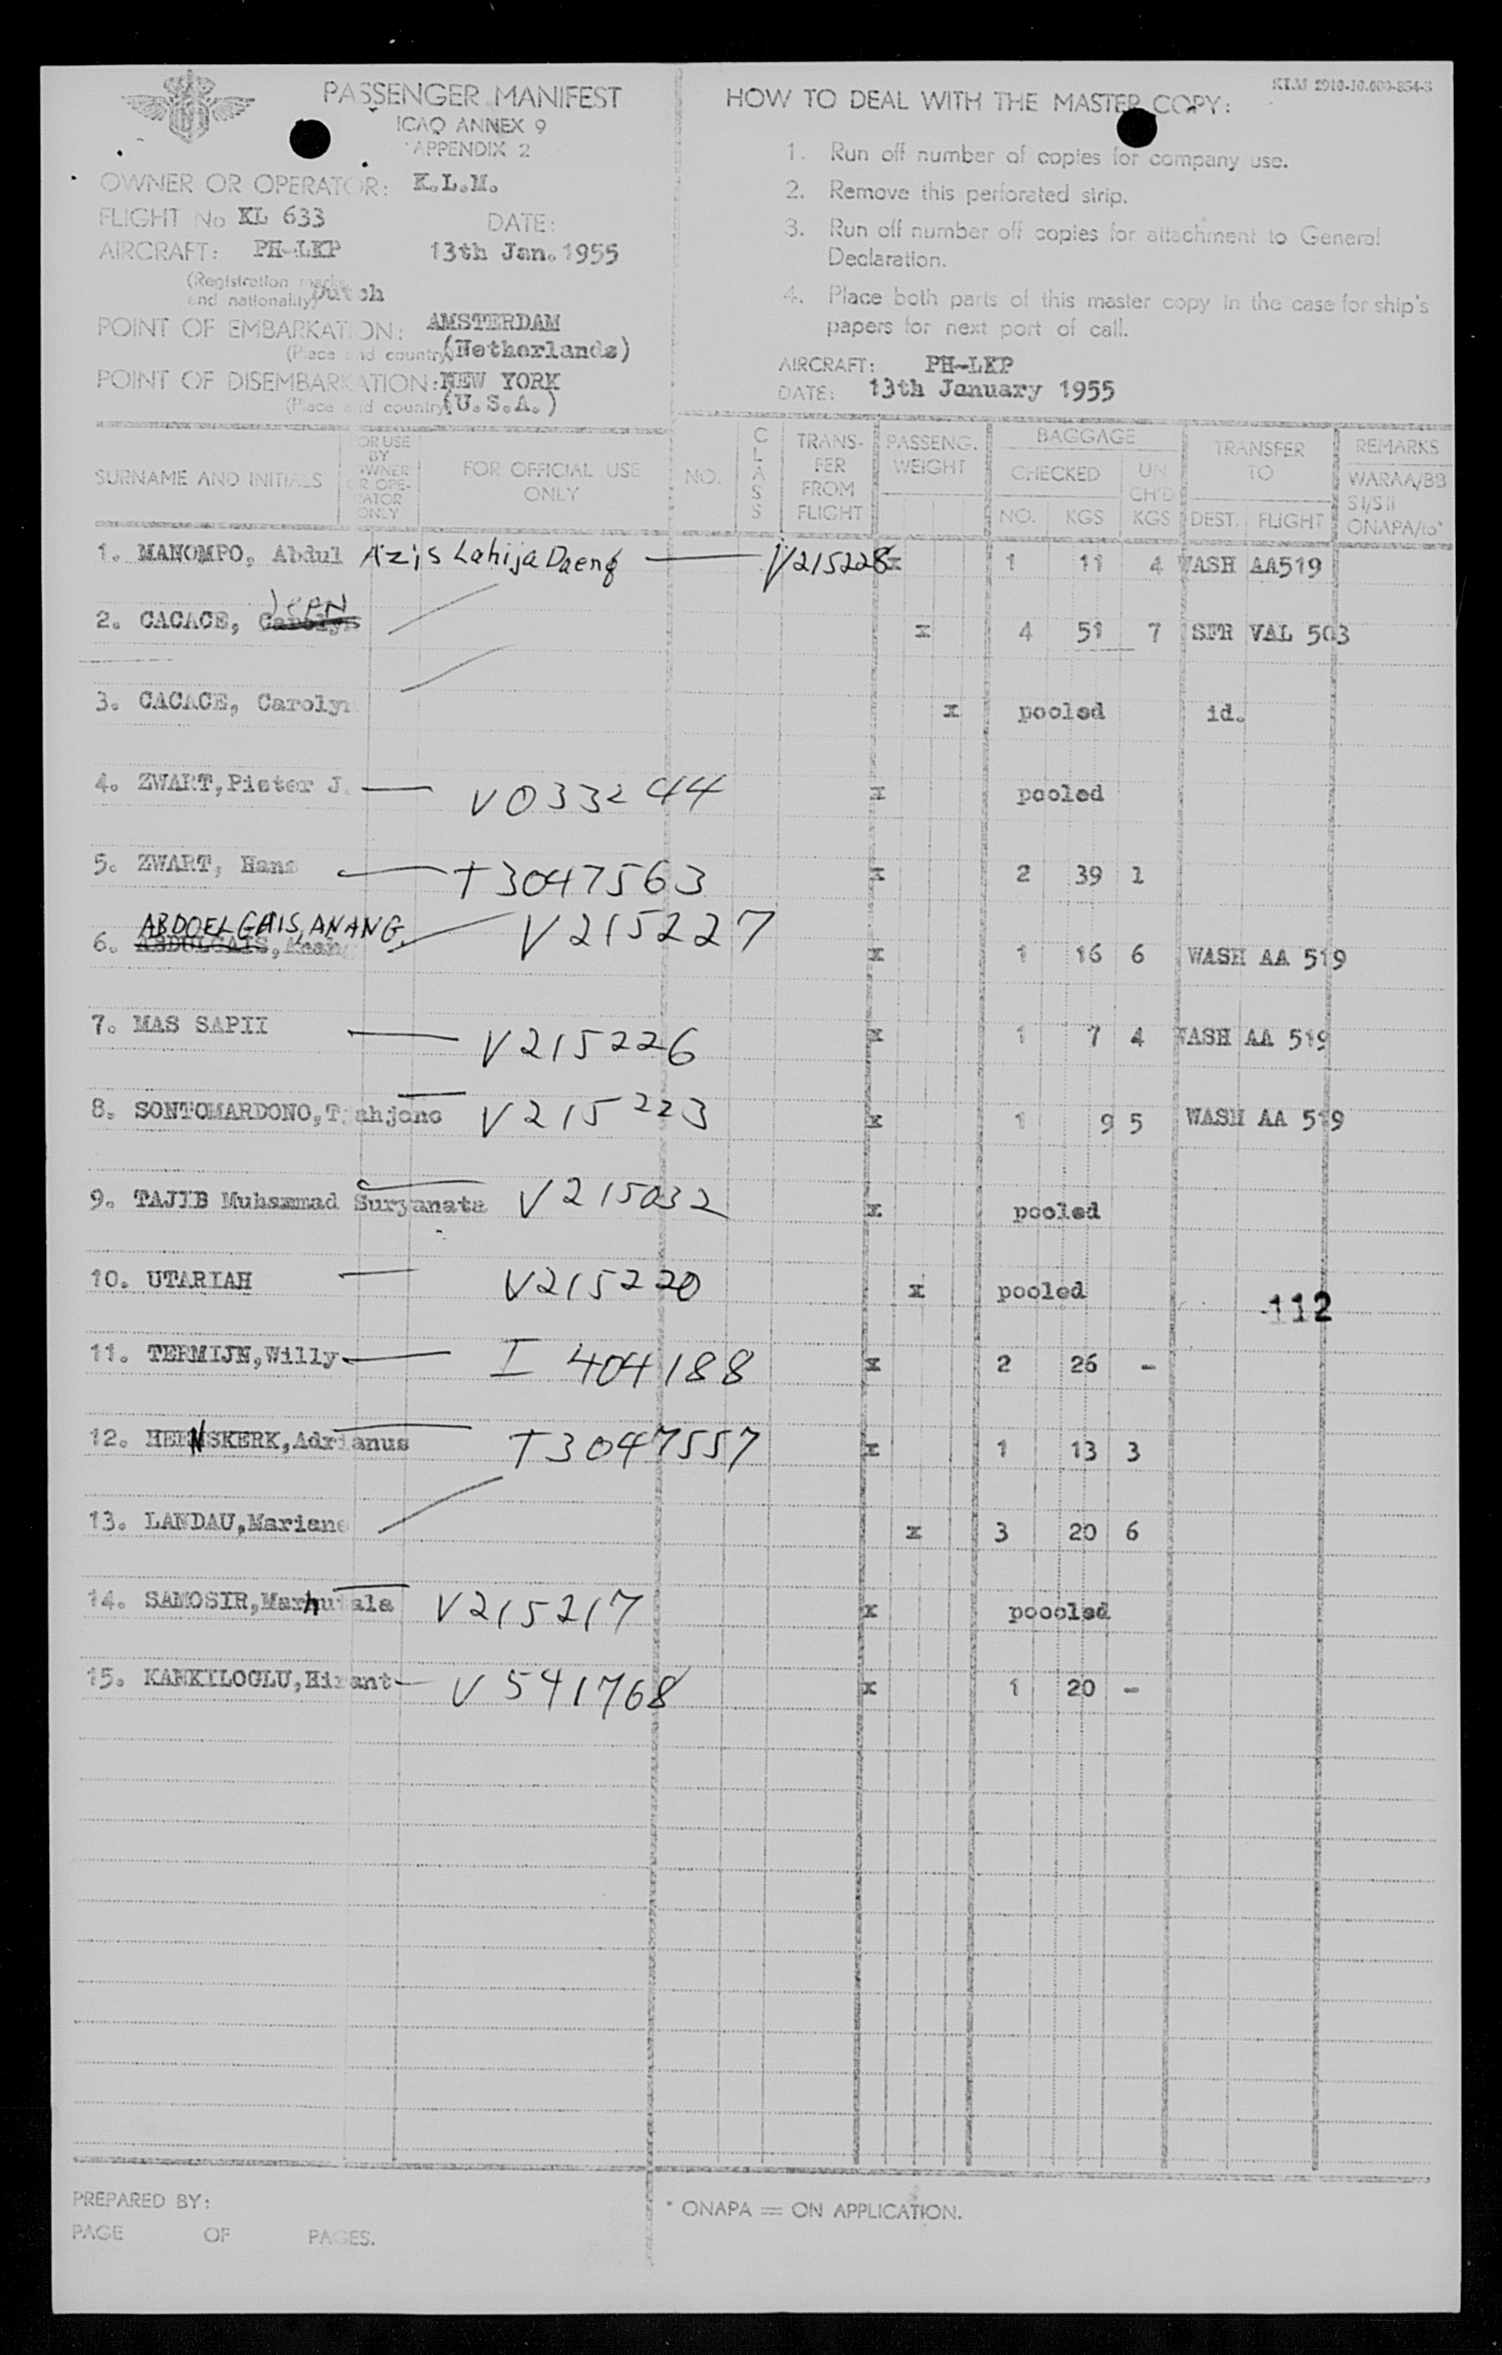 PASSENGER MANIFEST
ICAO ANNEX 9
APPENDIX 2
OWNER OR OPERATOR: K.L.M.
FLIGHT No KL 633 DATE:
AIRCRAFT: PH-LKP 13th Jan. 1955
(Registration marks
and nationality) Dutch
POINT OF EMBARKATION: AMSTERDAM
(Place and country) (Netherlands)
POINT OF DISEMBARKATION: NEW YORK
(Place and country) (U.S.A.)
KLM 2910-10.000-854-3
HOW TO DEAL WITH THE MASTER COPY:
1. Run off number of copies for company use.
2. Remove this perforated strip.
3. Run off number off copies for attachment to General
Declaration.
4. Place both parts of this master copy in the case for ship's
papers for next port of call.
AIRCRAFT: PH-LKP
DATE: 13th January 1955
SURNAME AND INITIALS
FOR USE BY OWNER OR OPERATOR ONLY
FOR OFFICIAL USE ONLY
NO.
CLASS
TRANSFER FROM FLIGHT
PASSENG. WEIGHT
BAGGAGE
CHECKED
UNCH'D
NO. KGS KGS
TRANSFER TO
DEST. FLIGHT
REMARKS
WARAA/BB
SI/SII
ONAPA/io*
1. MANOMPO, Abdul Azis Lahija Daeng V215228 x 1 11 4 WASH AA519
2. CACACE, Carolyn JEAN x 4 51 7 SFR VAL 503
3. CACACE, Carolyn x pooled id.
4. ZWART, Pieter J. V0333244 x pooled
5. ZWART, Hans T3047563 x 2 39 1
ABDOELGAIS, ANANG
6. ABDULGAIS, Anang V215227 x 1 16 6 WASH AA 519
7. MAS SAPII V215226 x 1 7 4 WASH AA 519
8. SONTOMARDONO, Tjahjono V215223 x 1 9 5 WASH AA 519
9. TAJIB Muhammad Suryanata V215032 x pooled
10. UTARIAH V215220 x pooled
112
11. TERMIJN, Willy I 404188 x 2 26 -
12. HEINSKERK, Adrianus T3047557 x 1 13 3
13. LANDAU, Mariane x 3 20 6
14. SAMOSIR, Marhutala V215217 x poooled
15. KANKILOGLU, Hirant V541768 x 1 20 -
PREPARED BY:
PAGE OF PAGES.
* ONAPA = ON APPLICATION.